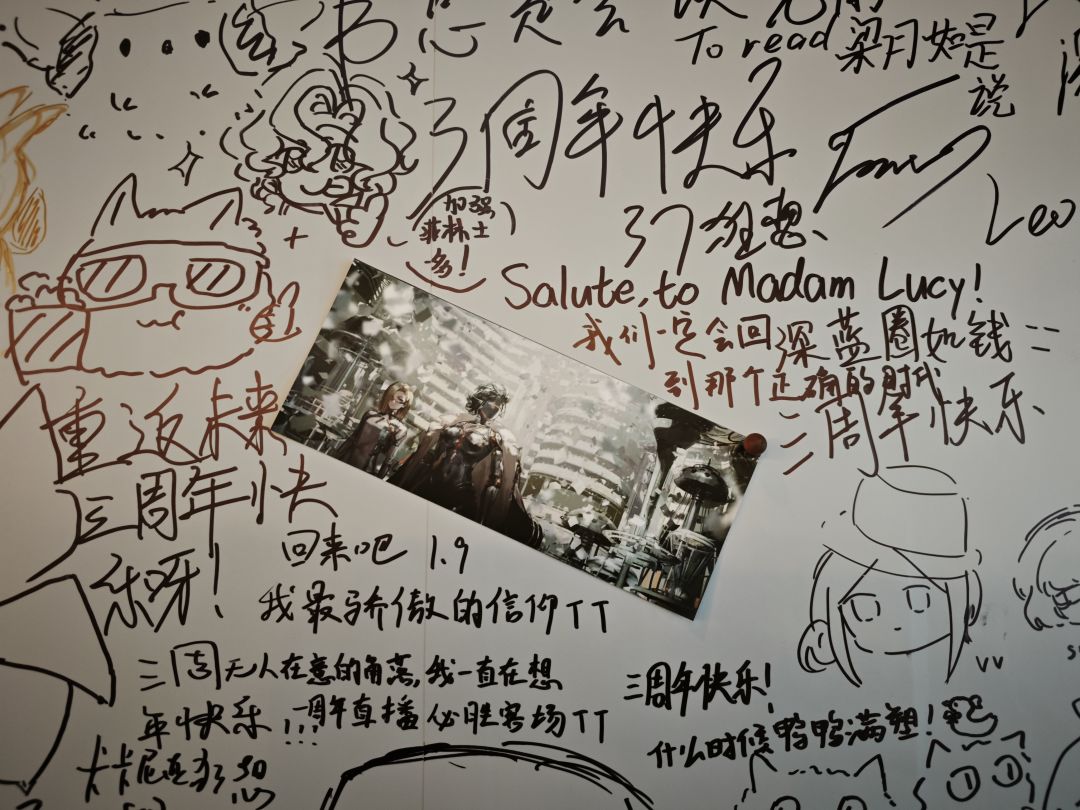 To read 梁月如是
说
3周年快乐
Leo
加强
菲林士
多!
37狂想
Salute, to Madam Lucy!
我们一定会回深蓝圈如钱
到那个正确的时代
三周年快乐
重返未来
三周年快
乐呀!
回来吧 1.9
我最骄傲的信仰TT
三周
年快乐!!!
无人在意的角落,我一直在想
一周年直播必胜客场TT
三周年快乐!
什么时候鸭鸭满塑!
vv
卡卡尼亚